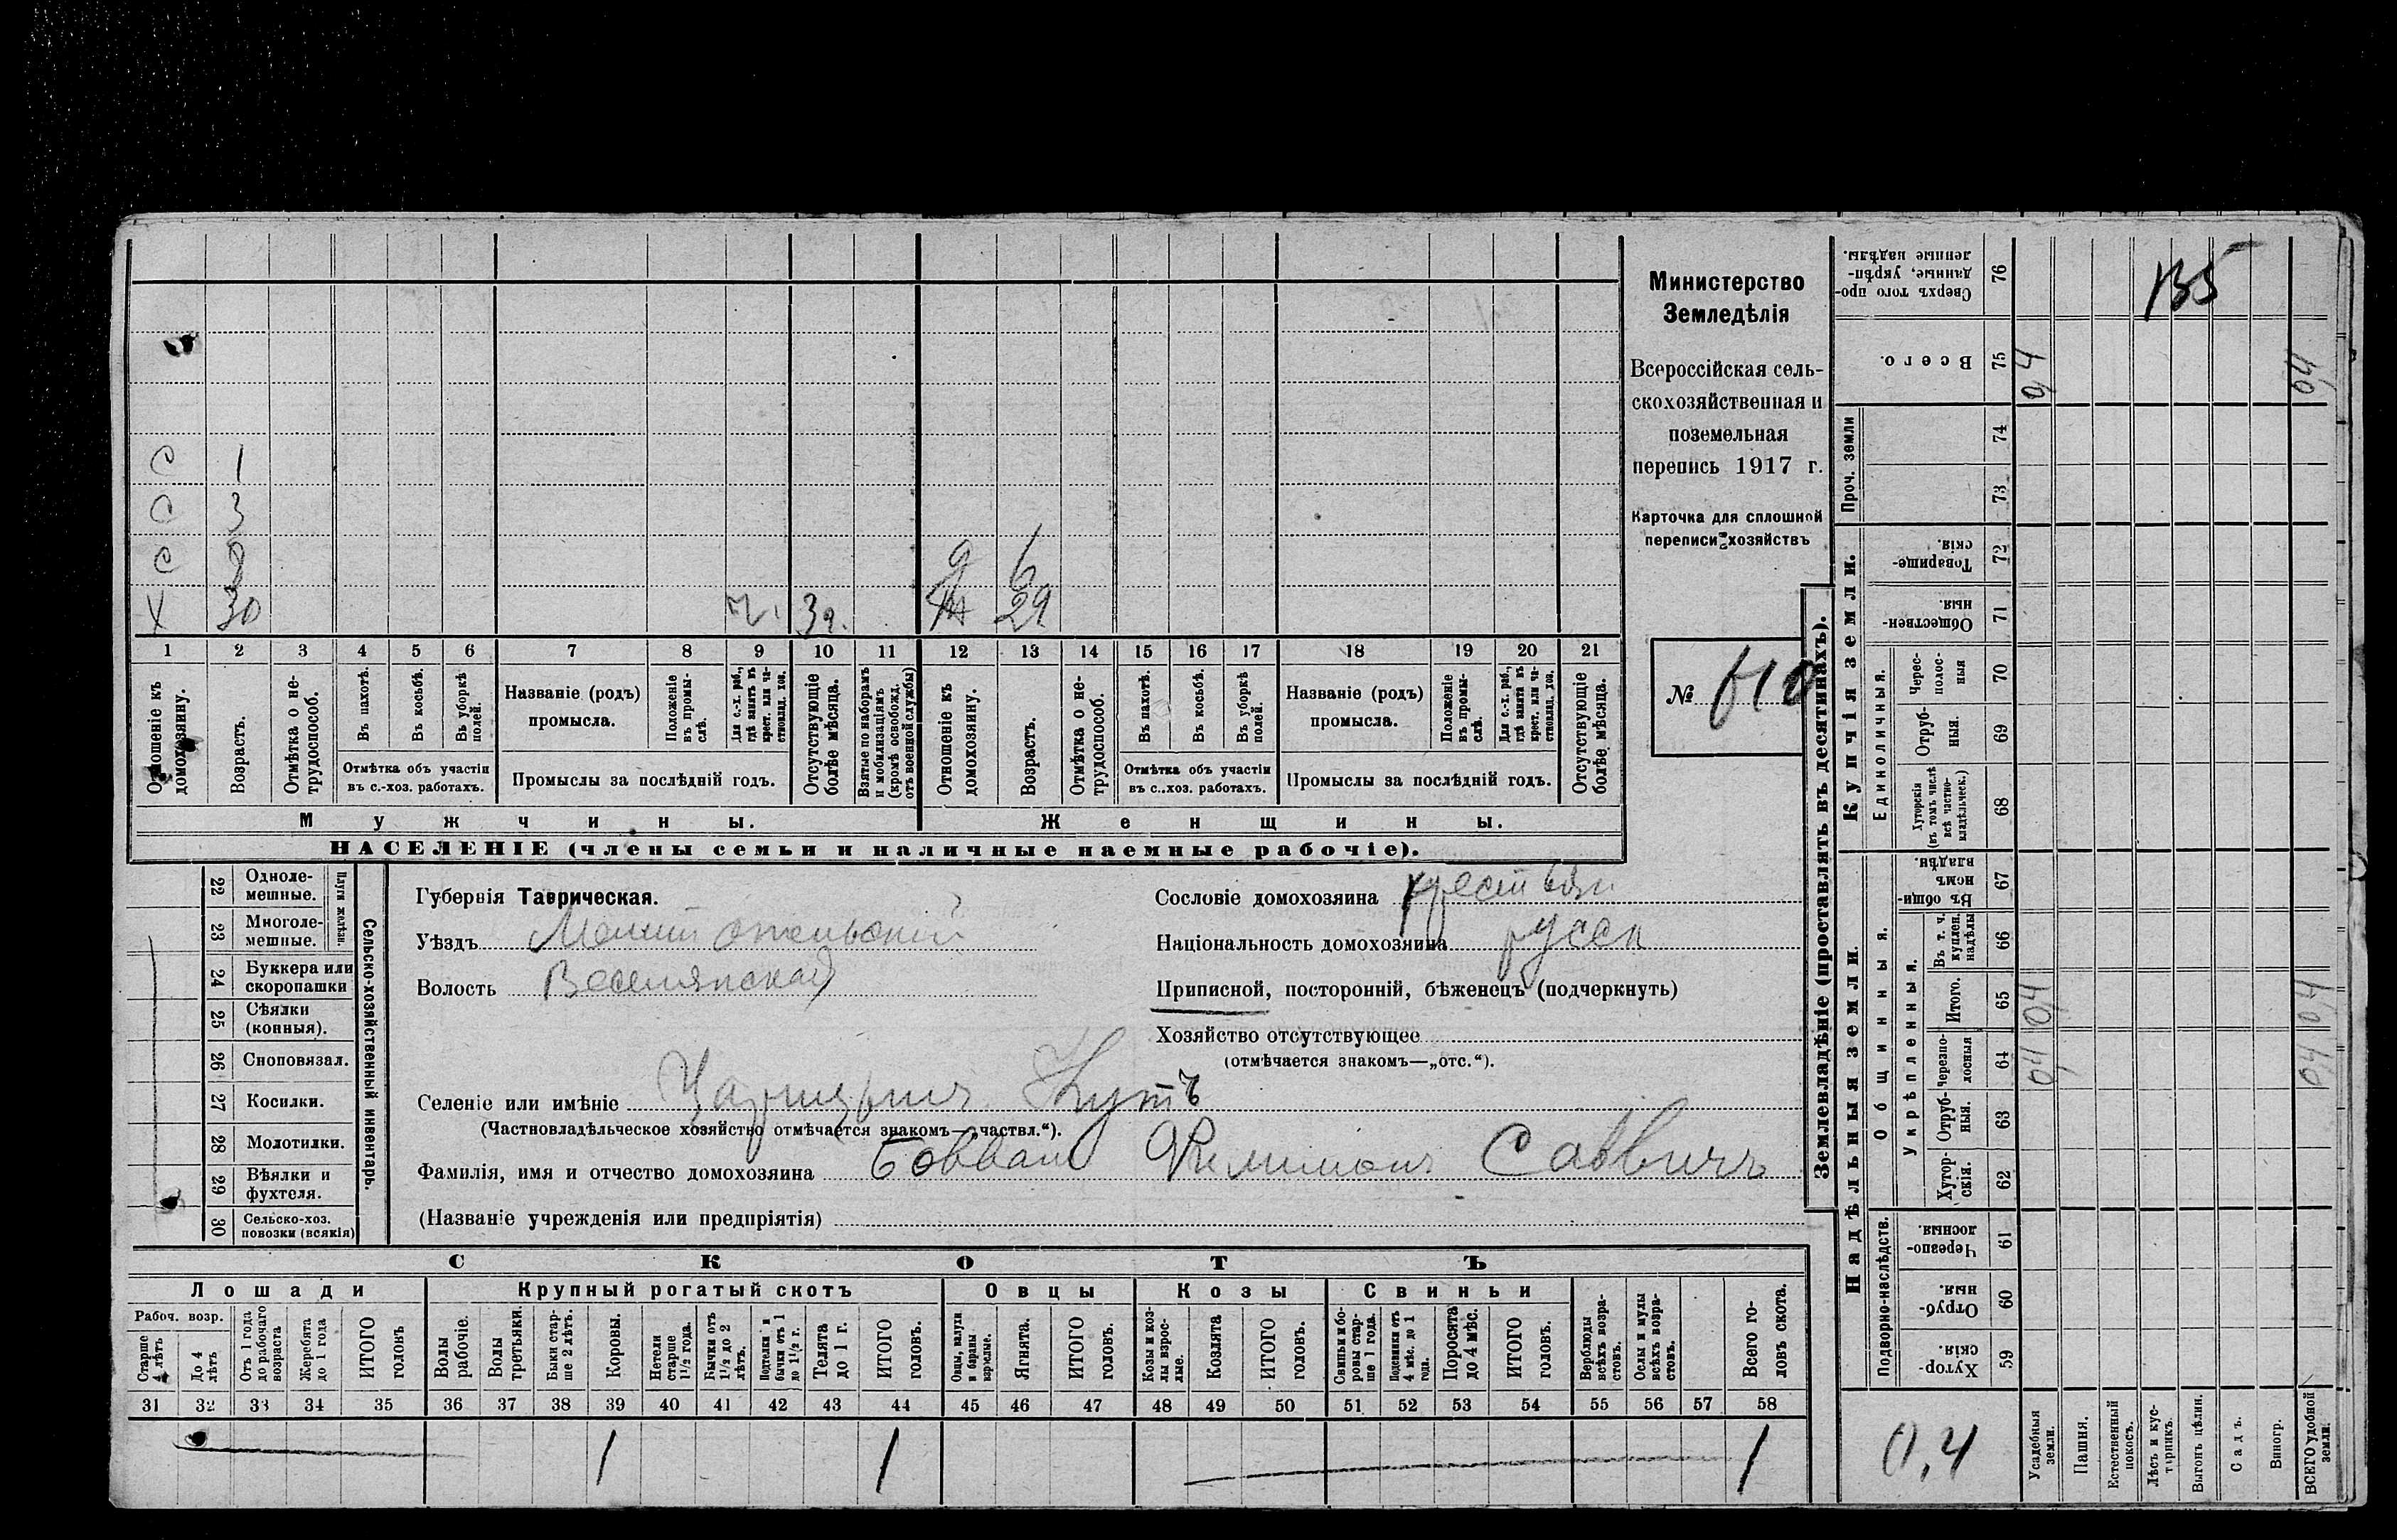 С 1
С 3
С 8
Х 30 3г. 29
6
1 2 3 4 5 6 7 8 9 10 11 12 13 14 15 16 17 18 19 20 21
Отношеніе къ домохозяину.
Возрастъ.
Отмѣтка о не-трудоспособ.
Въ пахотѣ.
Въ косьбѣ.
Въ уборкѣ полей.
Отмѣтка объ участіи въ с.-хоз. работахъ.
Названіе (родъ) промысла.
Положеніе въ промы-слѣ.
Для с.-х. раб., гдѣ занятъ въ крест. или ча-стновлад. хоз.
Промыслы за послѣдній годъ.
Отсутствующіе болѣе мѣсяца.
Взятые по наборамъ и мобилизаціямъ (кромѣ освобожд. отъ военной службы)
Отношеніе къ домохозяину.
Возрастъ.
Отмѣтка о не-трудоспособ.
Въ пахотѣ.
Въ косьбѣ.
Въ уборкѣ полей.
Отмѣтка объ участіи въ с..хоз. работахъ.
Названіе (родъ) промысла.
Положеніе въ промы-слѣ.
Для с.-х. раб., гдѣ занята въ крест. или ча-стновлад. хоз.
Промыслы за послѣдній годъ.
Отсутствующіе болѣе мѣсяца.
Мужчины. Женщины.
НАСЕЛЕНІЕ (члены семьи и наличные наемные рабочіе).
Министерство
Земледѣлія
Всероссійская сель-
скохозяйственная и
поземельная
перепись 1917 г.
Карточка для сплошной
переписи хозяйствъ
№ 610
22 Одноле-мешные.
23 Многоле-мешные.
Плуги желѣзн.
24 Буккера или скоропашки
25 Сѣялки (конныя).
26 Сноповязал.
27 Косилки.
28 Молотилки.
29 Вѣялки и фухтеля.
30 Сельско-хоз. повозки (всякія)
Сельско-хозяйственный инвентарь.
Губернія Таврическая.
Уѣздъ Мелитопольскій
Волость Веселянская
Сословіе домохозяина крестьян
Національность домохозяина русск
Приписной, посторонній, бѣженецъ (подчеркнуть)
Хозяйство отсутствующее
(отмѣчается знакомъ—„отс.“).
Селеніе или имѣніе Царицынъ Кутъ
(Частновладѣльческое хозяйство отмѣчается знакомъ—„частвл.“).
Фамилія, имя и отчество домохозяина Бовван Филимонъ Саввичъ
(Названіе учрежденія или предпріятія)
СКОТЪ
Лошади Крупный рогатый скотъ Овцы Козы Свиньи
Рабоч. возр.
Старше 4 лѣтъ
До 4 лѣтъ
Отъ 1 года до рабочаго возраста
Жеребята до 1 года
ИТОГО головъ
Волы рабочіе.
Волы третьяки.
Быки стар-ше 2 лѣтъ.
Коровы.
Нетели старше 1 1/2 года.
Бычки отъ 1 1/2 до 2 лѣтъ.
Подтелки и бычки отъ 1 до 1 1/2 г.
Телята до 1 г.
ИТОГО головъ.
Овцы, валухи и бараны взрослые.
Ягнята.
ИТОГО головъ.
Козы и коз-лы взрос-лые.
Козлята
ИТОГО головъ.
Свиньи и бо-ровы стар-ше 1 года.
Подсвинки отъ 4 мѣс. до 1 года.
Поросята до 4 мѣс.
ИТОГО головъ.
Верблюды всѣхъ возра-стовъ.
Ослы и мулы всѣхъ возра-стовъ.
Всего го-ловъ скота.
31 32 33 34 35 36 37 38 39 40 41 42 43 44 45 46 47 48 49 50 51 52 53 54 55 56 57 58
1 1 1
Землевладѣніе (проставлять въ десятинахъ).
Купчія земли.
Надѣльныя земли.
Сверхъ того про-данные, укрѣп-ленные надѣлы. 76
135
Всего. 75 0,4 0,4
Проч. земли 74 73
Товарище-скія. 72
Обществен-ныя. 71
Единоличныя.
Черес-полос-ныя 70
Отруб-ныя. 69
Хуторскія (въ томъ числѣ всѣ частно-владѣльческ.) 68
Общинныя.
Въ общин-номъ владѣн. 67
Укрѣпленныя.
Въ т. ч. куплен. надѣлы 66
Итого. 65 0,4 0,4
Черезпо-лосныя 64 0,4 0,4
Отруб-ныя. 63
Хутор-скія. 62
Подворно-наслѣдств.
Черезпо-лосныя 61
Отруб-ныя. 60
Хутор-скія. 59
0,4
Усадебныя земли.
Пашня.
Естественный покосъ.
Лѣсъ и кус-тарникъ.
Выгонъ цѣлин.
Садъ.
Виногр.
ВСЕГО удобной земли.